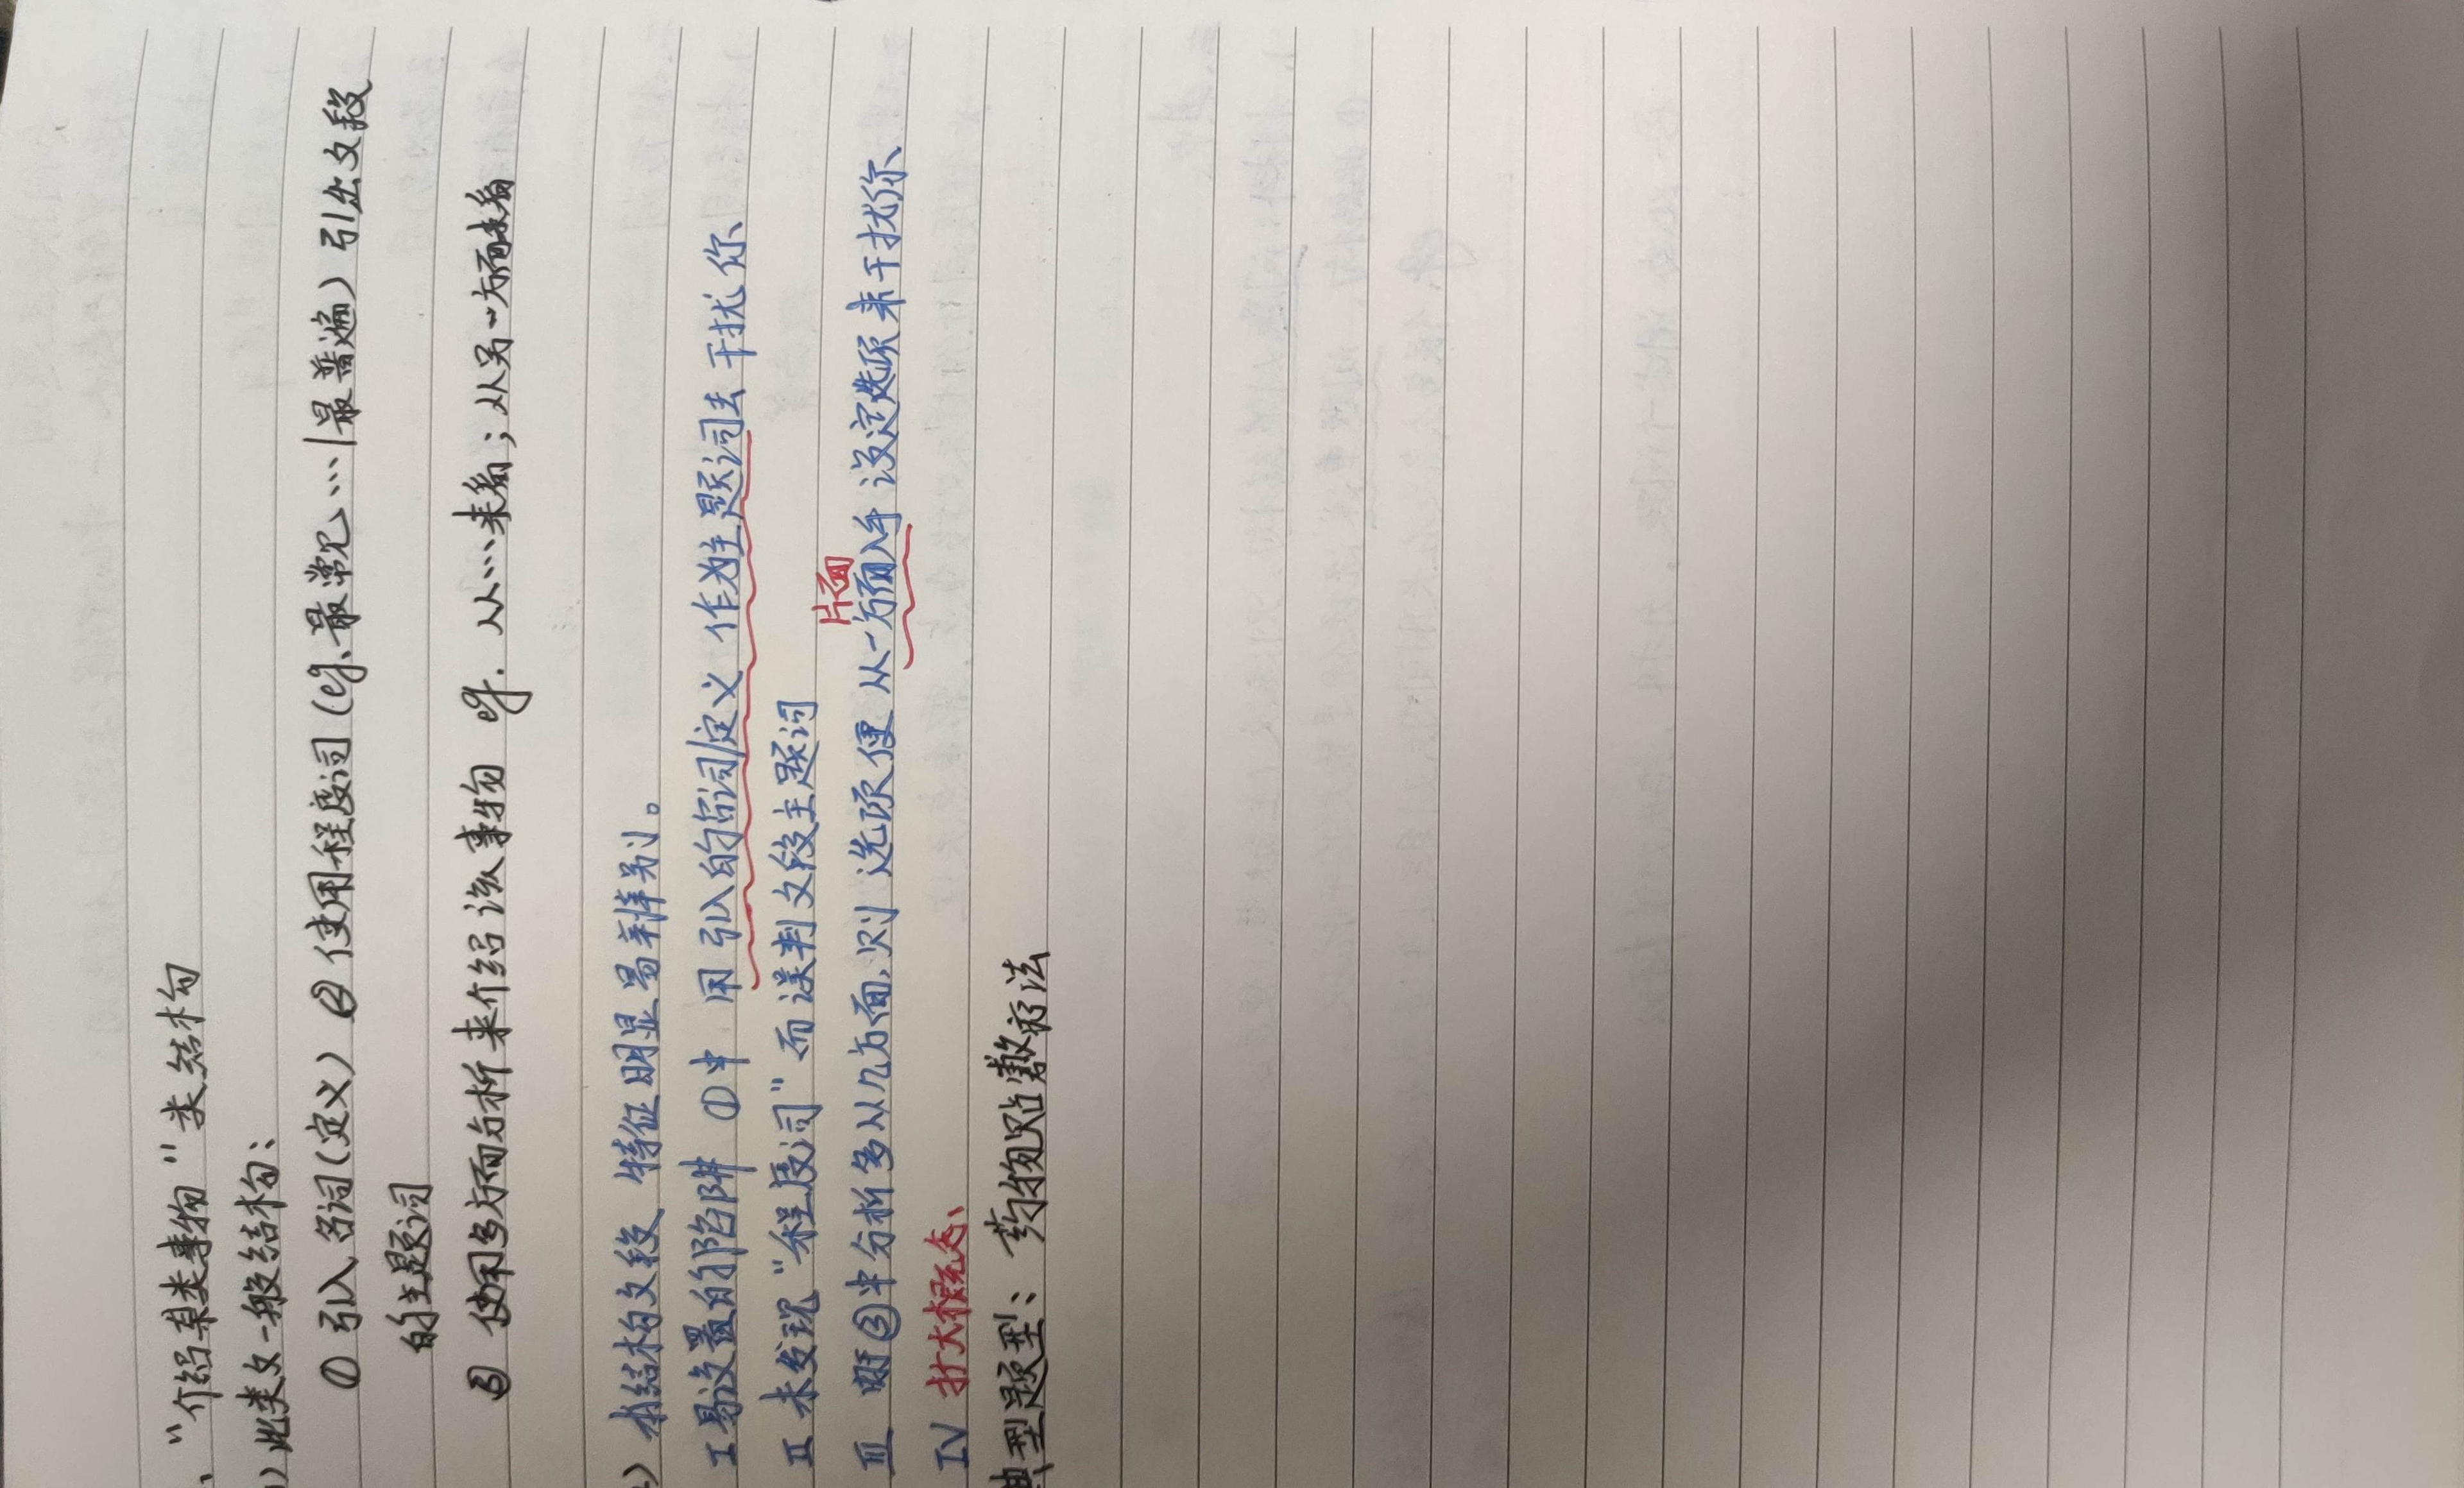 、“介绍某类事物”类结构
1）此类文一般结构：
① 引入名词（定义） ② 使用程度词（eg.最常见…|最普遍）引出文段
的主题词
③ 使用多方面分析来介绍该事物 eg. 从…来看；从另一方面来看
2）本结构文段 特征明显易辨别。
I 易设置的陷阱 ①中 用引入的名词/定义 作为主题词去干扰你、
II 未发现“程度词”而误判文段主题词
片面
III 由于③中分析多从几方面，则 选项便 从一方面入手 设定选项来干扰你、
IV 扩大概念、
典型题型：药物贴敷疗法